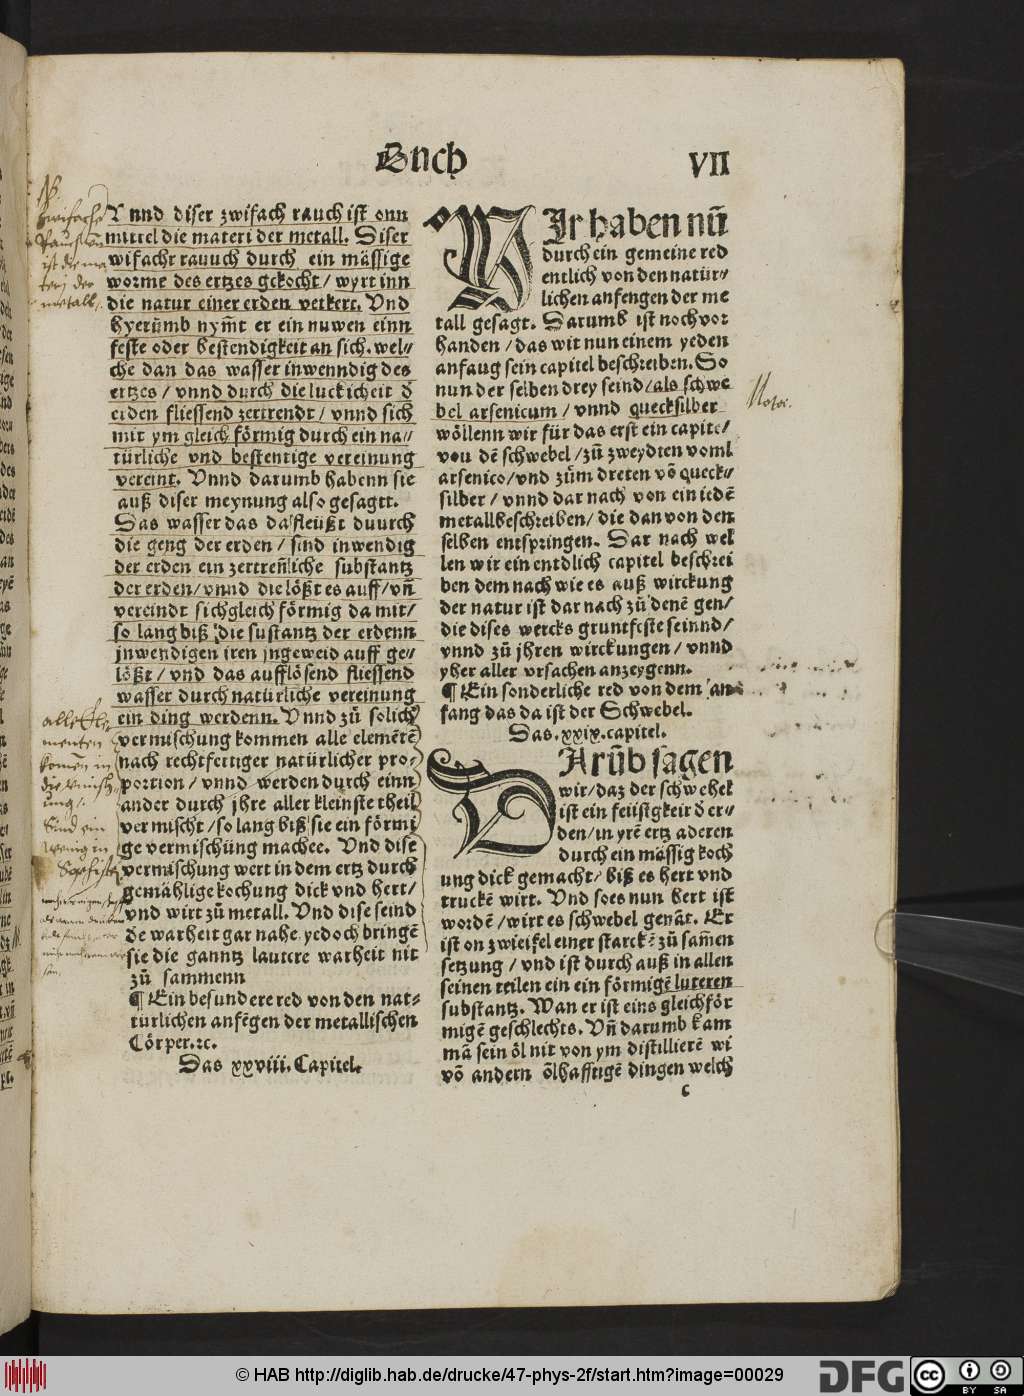 Buch
VII
Vnnd diser zwifach rauch ist onn
mittel die materi der metall. Diser
zwifachr rauuch durch ein mässige
worme des ertzes gekocht / wyrt inn
die natur einer erden verkert. Vnd
hyerūmb nym̄t er ein nuwen einn
feste oder bestendigkeit an sich. wel⸗
che dan das wasser inwenndig des
ertzes / vnnd durch die luckicheit d̄
erden fliessend zertrendt / vnnd sich
mit ym gleich förmig durch ein na⸗
türliche vnd bestentige vereinung
vereint. Vnnd darumb habenn sie
auß diser meynung also gesagtt.
Das wasser das da fleüßt duurch
die geng der erden / sind inwendig
der erden ein zertren̄liche substantz
der erden / vnnd die lößt es auff / vn̄
vereindt sichgleich förmig da mit /
so lang biß die sustantz der erdenn
jnwendigen iren jngeweid auff ge⸗
lößt / vnd das aufflösend fliessend
wasser durch natürliche vereinung
ein ding werdenn. Vnnd zů solich
vermischung kommen alle elemētē
nach rechtfertiger natürlicher pro⸗
portion / vnnd werden durch einn
ander durch jhre aller kleinste theil
vermischt / so lang biß sie ein förmi
ge vermischüng machee. Vnd dise
vermischung wert in dem ertz durch
gemählige kochung dick vnd hert /
vnd wirt zů metall. Vnd dise seind
de warheit gar nahe yedoch bringē
sie die ganntz lautere warheit nit
zů sammenn
¶ Ein besundere red von den nat⸗
türlichen anfēgen der metallischen
Cörper.ꝛc.
Das xxviii. Capitel.
WJr haben nū
durch ein gemeine red
entlich von den natür⸗
lichen anfengen der me
tall gesagt. Darumb ist noch vor
handen / das wir nun einem yeden
anfaug sein capitel beschreiben. So
nun der selben drey seind / als schwe
bel arsenicum / vnnd quecksilber
wöllenn wir für das erst ein capitel
vou dē schwebel / zů zweydten voml
arsenico / vnd zům dreten vō queck⸗
silber / vnnd dar nach von ein iedē
metall beschreiben / die dan von den
selben entspringen. Dar nach wel
len wir ein entdlich capitel beschrei
ben dem nach wie es auß wirckung
der natur ist dar nach zů denē gen /
die dises wercks gruntfeste seinnd /
vnnd zů jhren wirckungen / vnnd
yher aller vrsachen anzeygenn.
¶ Ein sonderliche red von dem an
fang das da ist der Schwebel.
Das. xxix. capitel.
DArūb sagen
wir / daz der schwebel
ist ein feiistigkeit d̄ er⸗
den / in yrē ertz aderen
durch ein mässig koch
ung dick gemacht / biß es hert vnd
truckē wirt. Vnd so es nun hert ist
wordē / wirt es schwebel genāt. Er
ist on zwieifel einer starckē zů sam̄en
setzung / vnd ist durch auß in allen
seinen teilen ein ein förmigē luteren
substantz. Wan er ist eins gleichför
migē geschlechts. Vn̄ darumb kam
mā sein öl nit von ym distillierē wi
vō andern ölhafftigē dingen welch
c
NB.
Zwifache
ist die ma
teri der
metall.
Nota.
alle Ele
menten
komen in
Sind ein
wenig in
© HAB http://diglib.hab.de/drucke/47-phys-2f/start.htm?image=00029
DFG
cc
BY SA